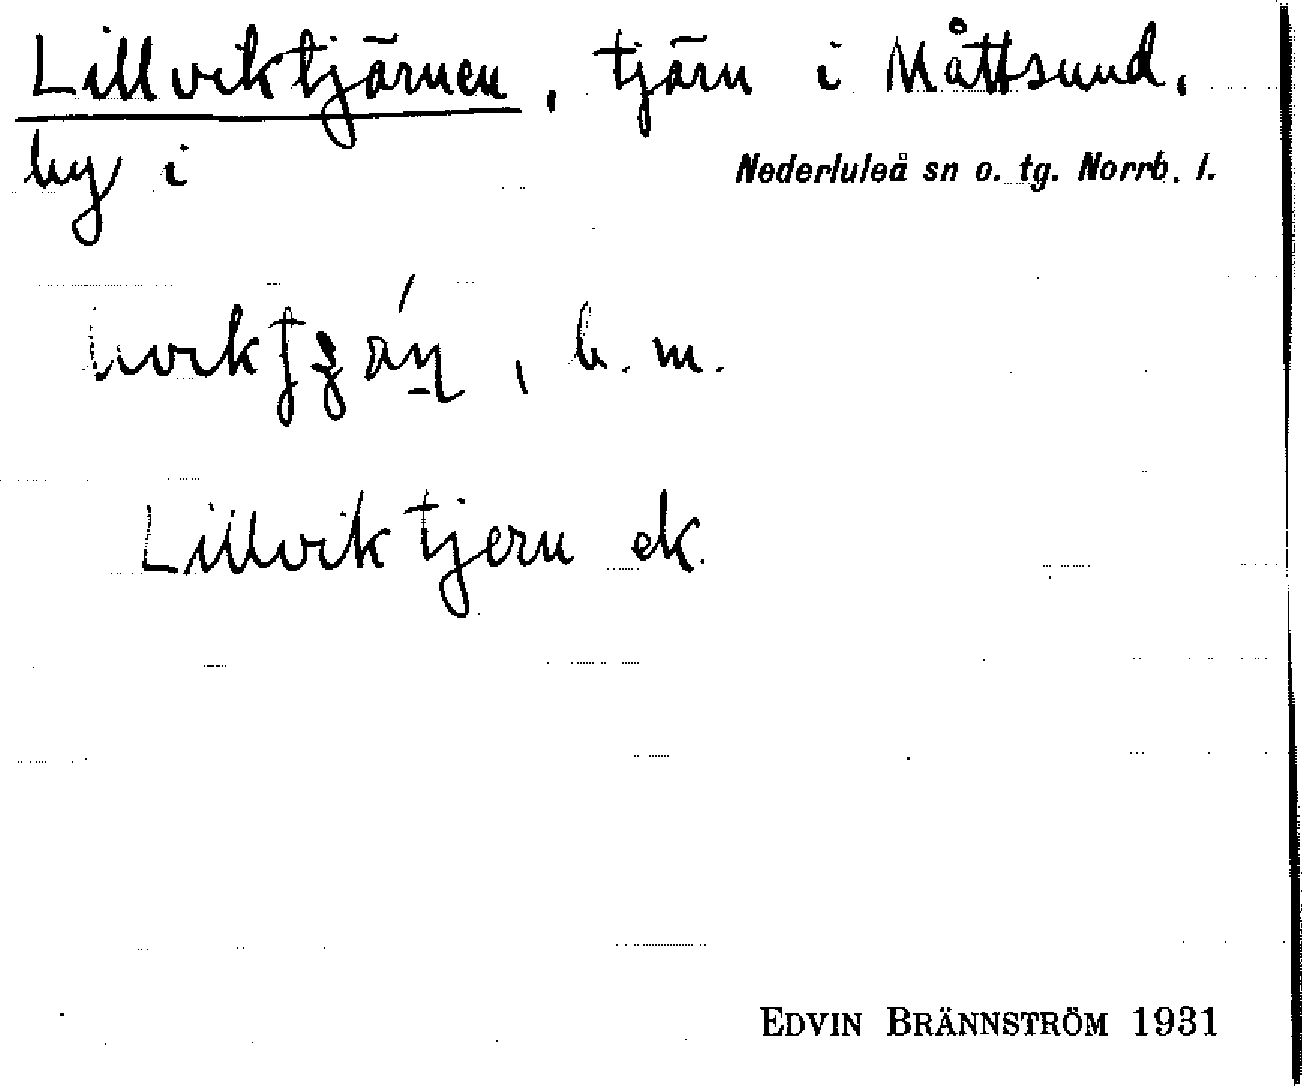 Lillviktjärnen, tjärn i Måttsund,
by i Nederluleå sn o. tg. Norrb. l.
, b. m.
Lillviktjern ek.
EDVIN BRÄNNSTRÖM 1931